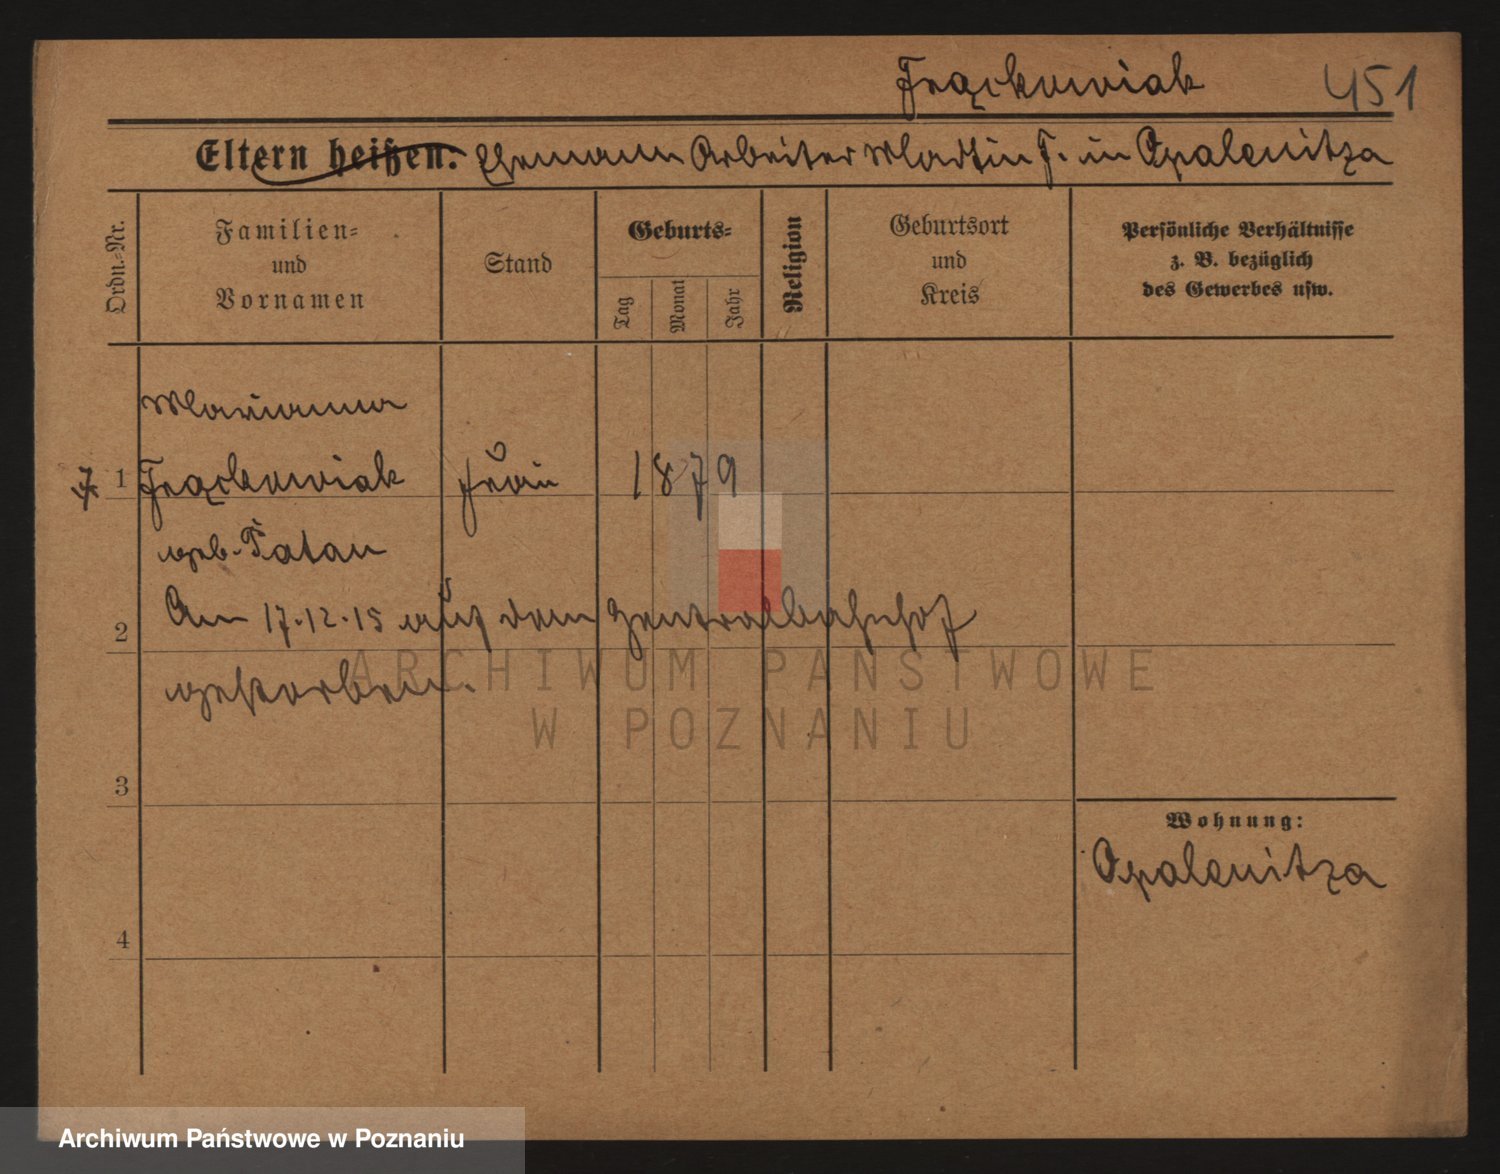 Frąckowiak 451
Eltern heißen: Ehemann Arbeiter Martin F. in Opalenitza
Ordn.-Nr.
Familien-
und
Vornamen
Stand
Geburts-
Tag
Monat
Jahr
Religion
Geburtsort
und
Kreis
Persönliche Verhältnisse
z. B. bezüglich
des Gewerbes usw.
Marianna
1 Frąckowiak Frau 1879
geb. Tatan
Am 17.12.15 auf dem Zentralbahnhof
2
gestorben.
ARCHIWUM PAŃSTWOWE
W POZNANIU
3
Wohnung:
Opalenitza
4
Archiwum Państwowe w Poznaniu